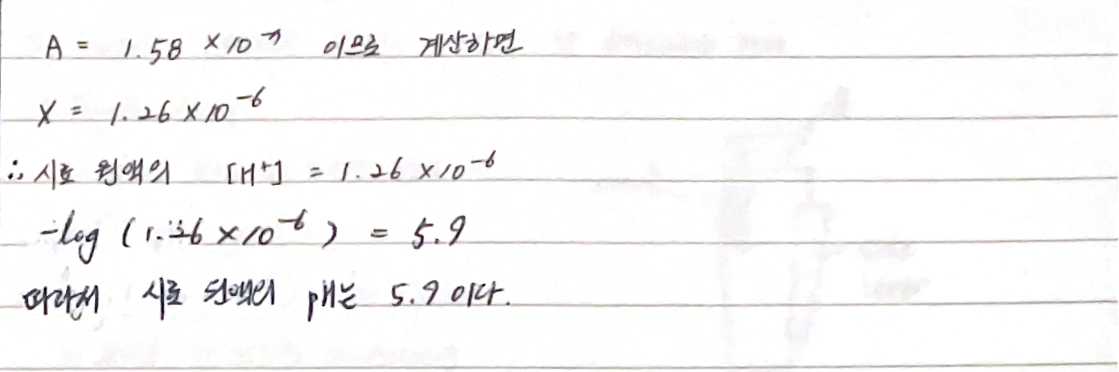 A = 1.58 ×10⁻⁷ 이므로 계산하면
X = 1.26 ×10⁻⁶
∴ 시료 원액의 [H⁺] = 1.26 ×10⁻⁶
-log (1.26 ×10⁻⁶) = 5.9
따라서 시료 원액의 pH는 5.9이다.